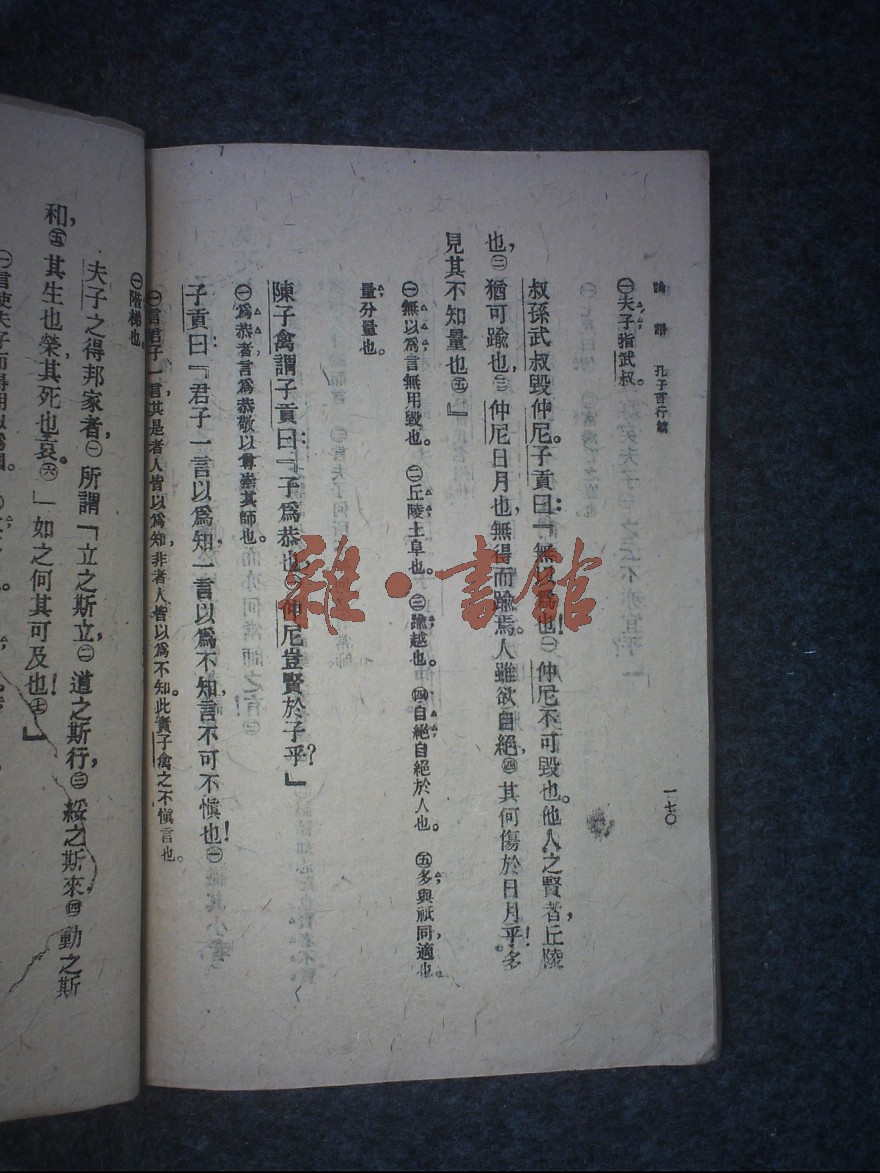 論語 孔子言行篇 一七〇
㊀夫子指武叔。
叔孫武叔毀仲尼。子貢曰:『無以爲也!㊀仲尼不可毀也。他人之賢者,丘陵
也,㊁猶可踰也,㊂仲尼日月也,無得而踰焉。人雖欲自絕,㊃其何傷於日月乎!多
見其不知量也㊄』
㊀無以爲言無用毀也。㊁丘陵土阜也。㊂踰越也。㊃自絕自絕於人也。㊄多與祇同,適也。
量分量也。
陳子禽謂子貢曰:『子爲恭也,㊀仲尼豈賢於子乎?』
㊀爲恭者言爲恭敬以尊崇其師也。
子貢曰:『君子一言以爲知,一言以爲不知,言不可不愼也!㊀
㊀言君子一言,其是者人皆以爲知,非者人皆以爲不知。此責子禽之不愼言也。
㊀階梯也。
夫子之得邦家者,㊀所謂「立之斯立,㊁道之斯行,㊂綏之斯來,㊃動之斯
和,㊄其生也榮,其死也哀。㊅」如之何其可及也!㊆』
雜·書館